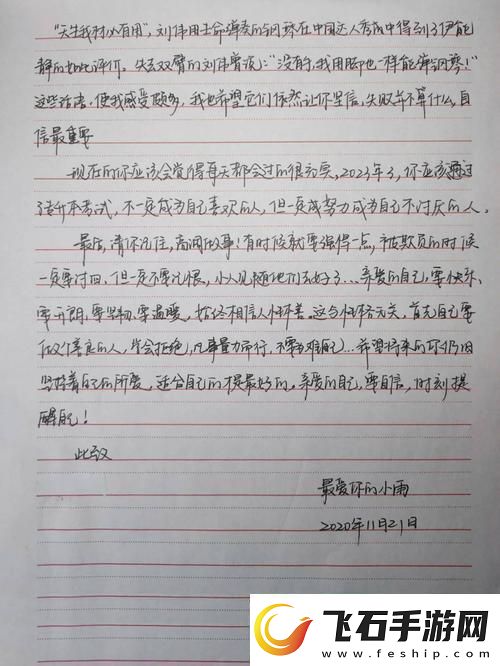 "天生我材必有用",刘伟用生命弹奏的钢琴在中国达人秀中得到了伊能
静的如此评价。失去双臂的刘伟曾说:"没有手,我用脚也一样能弹钢琴!"
这些话语,使我感受颇多,我也希望它们依然让你坚信,失败并不算什么,自
信最重要
现在的你应该会觉得每天都会过的很充实,2023年了,你应该通过
专升本考试,不一定成为自己喜欢的人,但一定成努力成为自己不讨厌的人。
最后,请你记住,高调做事!有时候就要强硬一点,被欺负的时候
一定要讨回,但一定不要记恨,小人见随他们去好了…亲爱的自己,要快乐、
要开朗、要坚韧、要温暖,始终相信人性本善。这与性格无关,首先自己要
做个善良的人,学会拒绝,凡事量力而行,不要为难自己…希望将来的你仍旧
坚持着自己的所爱,适合自己的才是最好的。亲爱的自己,要自信,时刻提
醒自己!
此致
最爱你的小雨
2020年11月21日
飞石手游网
www.feship.com